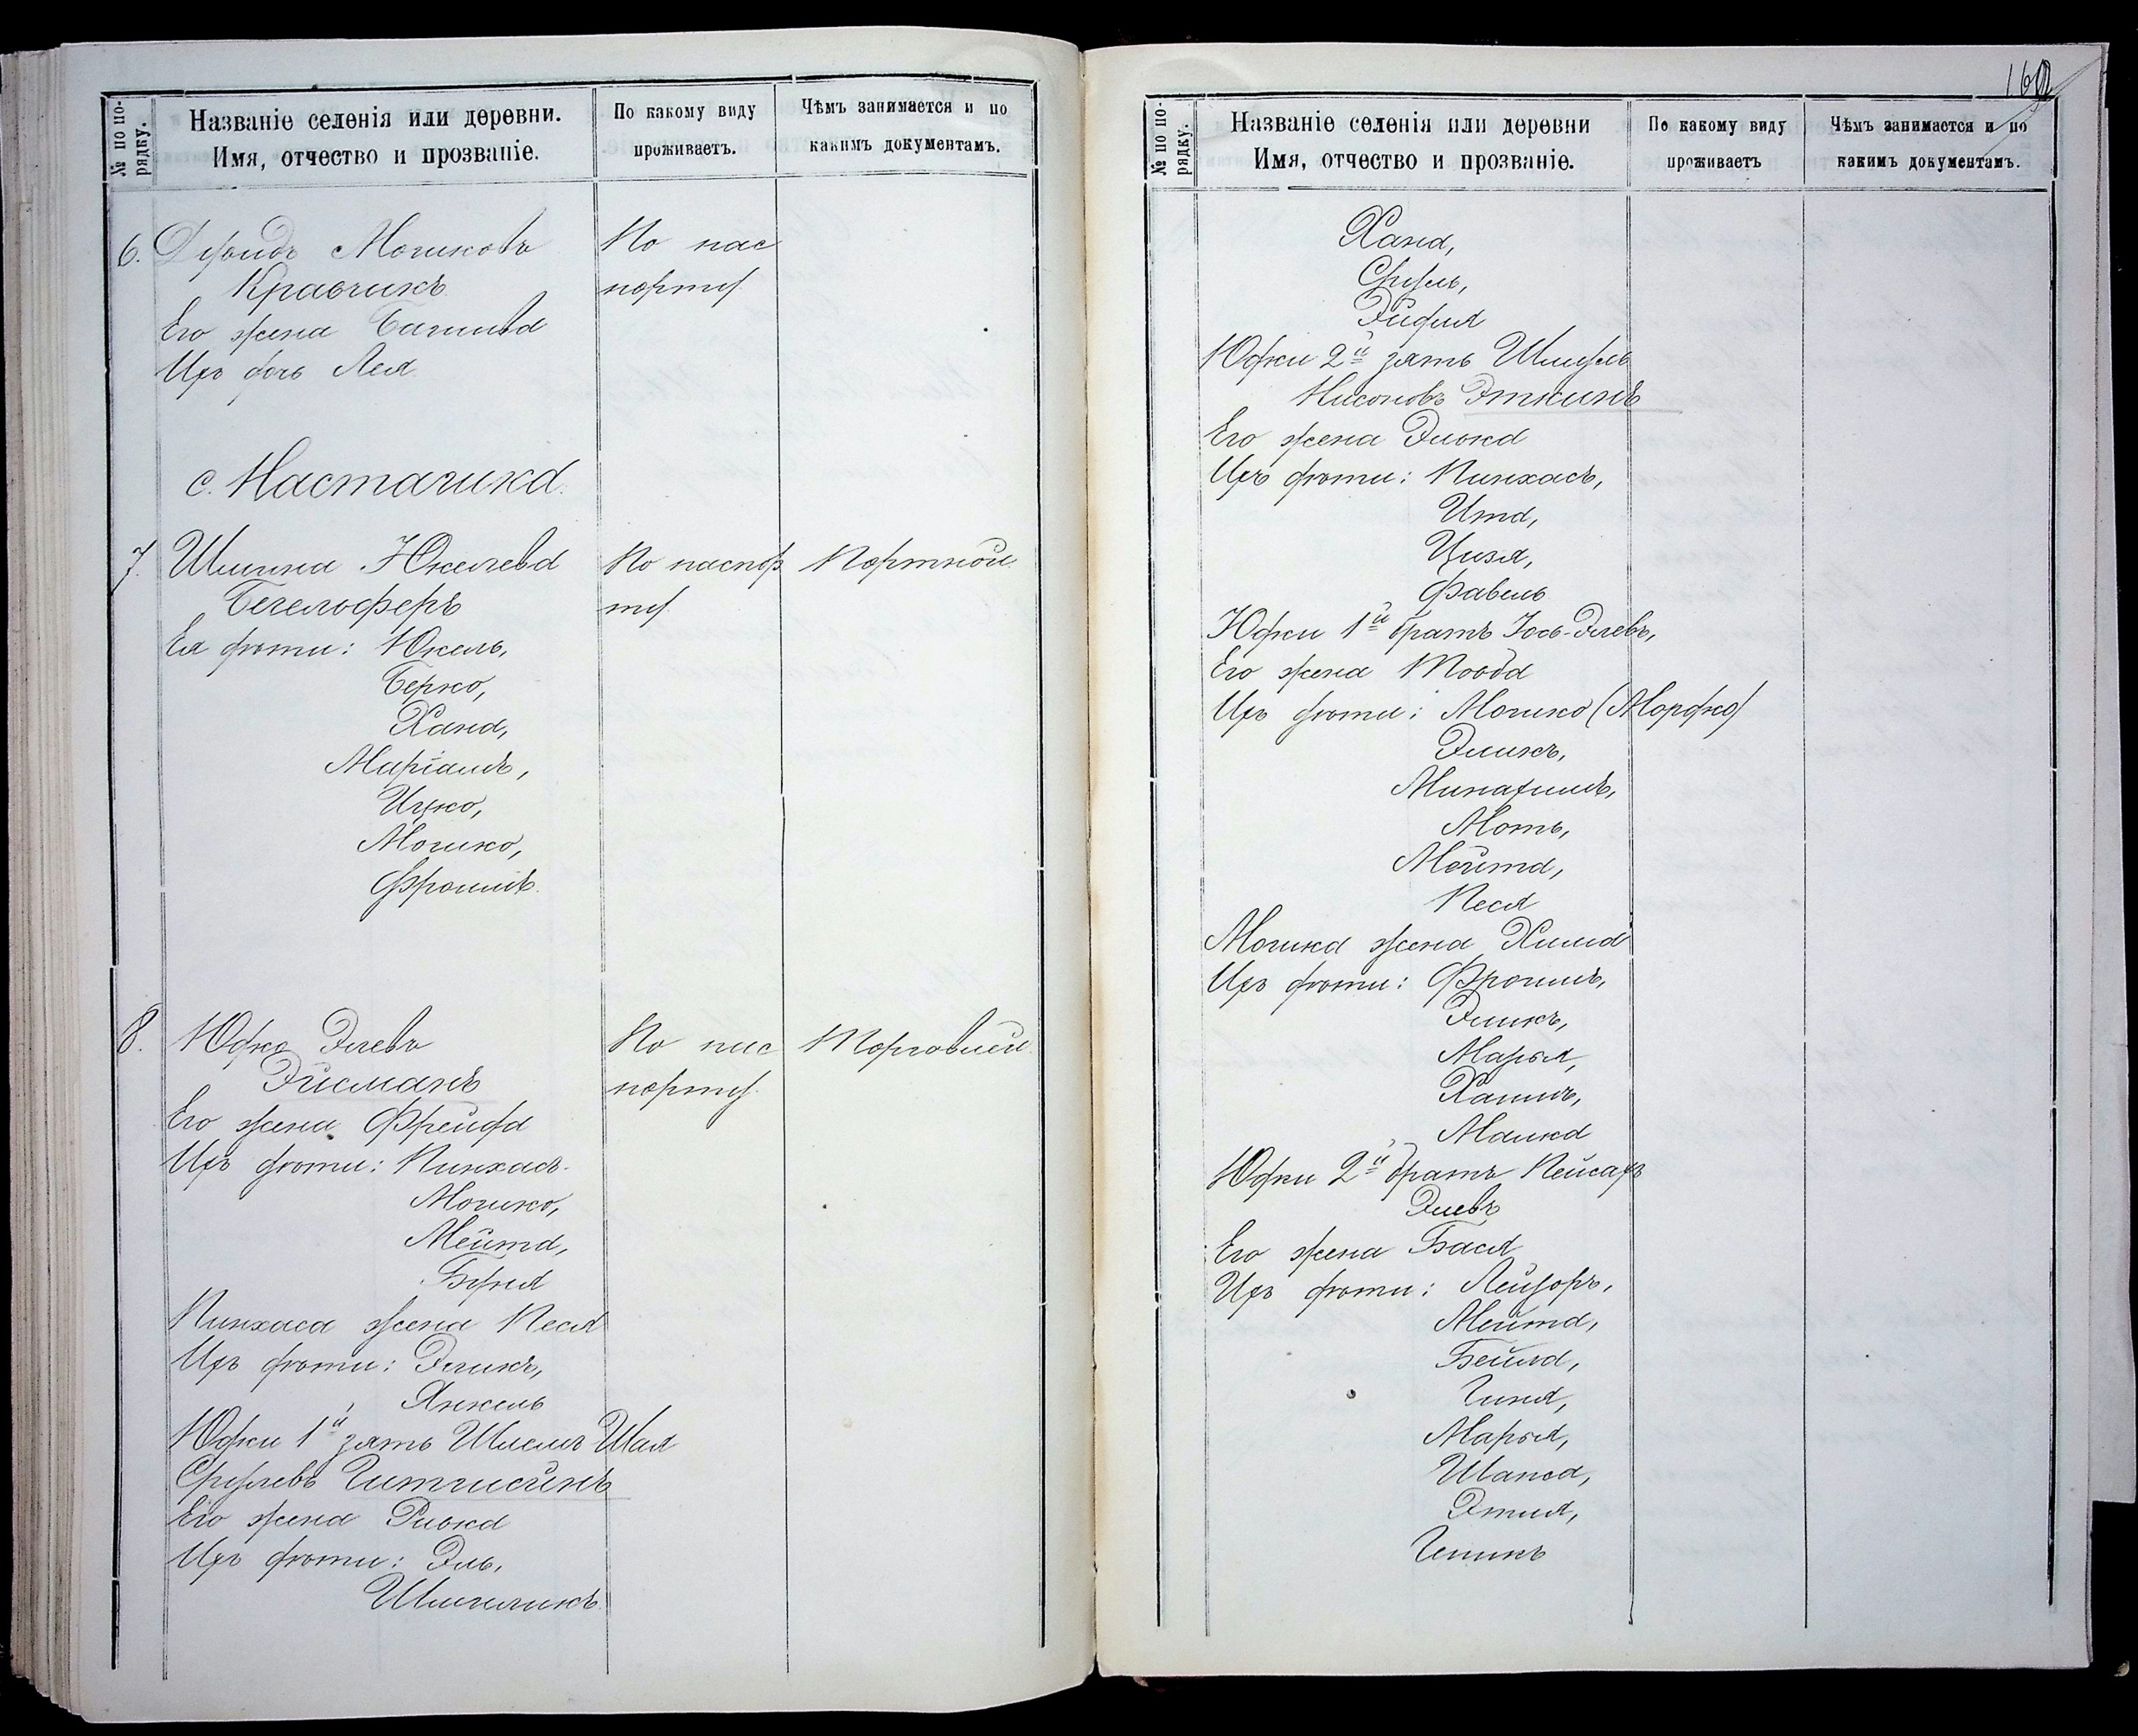 № по по-
рядку.
Названіе селенія или деревни.
Имя, отчество и прозваніе.
По какому виду
проживаетъ.
Чѣмъ занимается и по
какимъ документамъ.
6. Мошковъ По пас
Кравчикъ порту
Его жена
Ихъ дочь Лея
с. Настачика.
7. Юкелева По паспор Портной
ту
Ея дѣти: Юкель,
Берко,
Хана,
Маріамъ,
Ицко,
Мошко,
Фроимъ.
8. Юдко Элевъ По пас Торговлей
Эйсманъ порту.
Его жена Фрейда
Ихъ дѣти: Пинхасъ
Мошко,
Мейта,
Пинхаса жена Песя
Ихъ дѣти: Эликъ,
Янкель
Юдки 1й зять
Его жена Ривка
Ихъ дѣти: Эль,
Шмуликъ.
160
№ по по-
рядку.
Названіе селенія или деревни
Имя, отчество и прозваніе.
По какому виду
проживаетъ
Чѣмъ занимается и по
какимъ документамъ.
Хана,
Сруль,
Эйдля
Юдки 2й зять Шмуль
Нисоновъ Эткинъ
Его жена Элька
Ихъ дѣти: Пинхасъ,
Ита,
Цизя,
Фавель
Юдки 1й братъ Іось-Элевъ,
Его жена Товба
Ихъ дѣти: Мошко (Мордко)
Эликъ,
Минахимъ,
Моть,
Мейта,
Песя
Мошка жена
Ихъ дѣти: Фроимъ,
Эликъ,
Марья,
Хаимъ,
Малка
Юдки 2й братъ Пейсахъ
Элевъ
Его жена Бася
Ихъ дѣти: Лейзоръ,
Мейта,
Бейла,
Марья,
Шапса,
Этля,